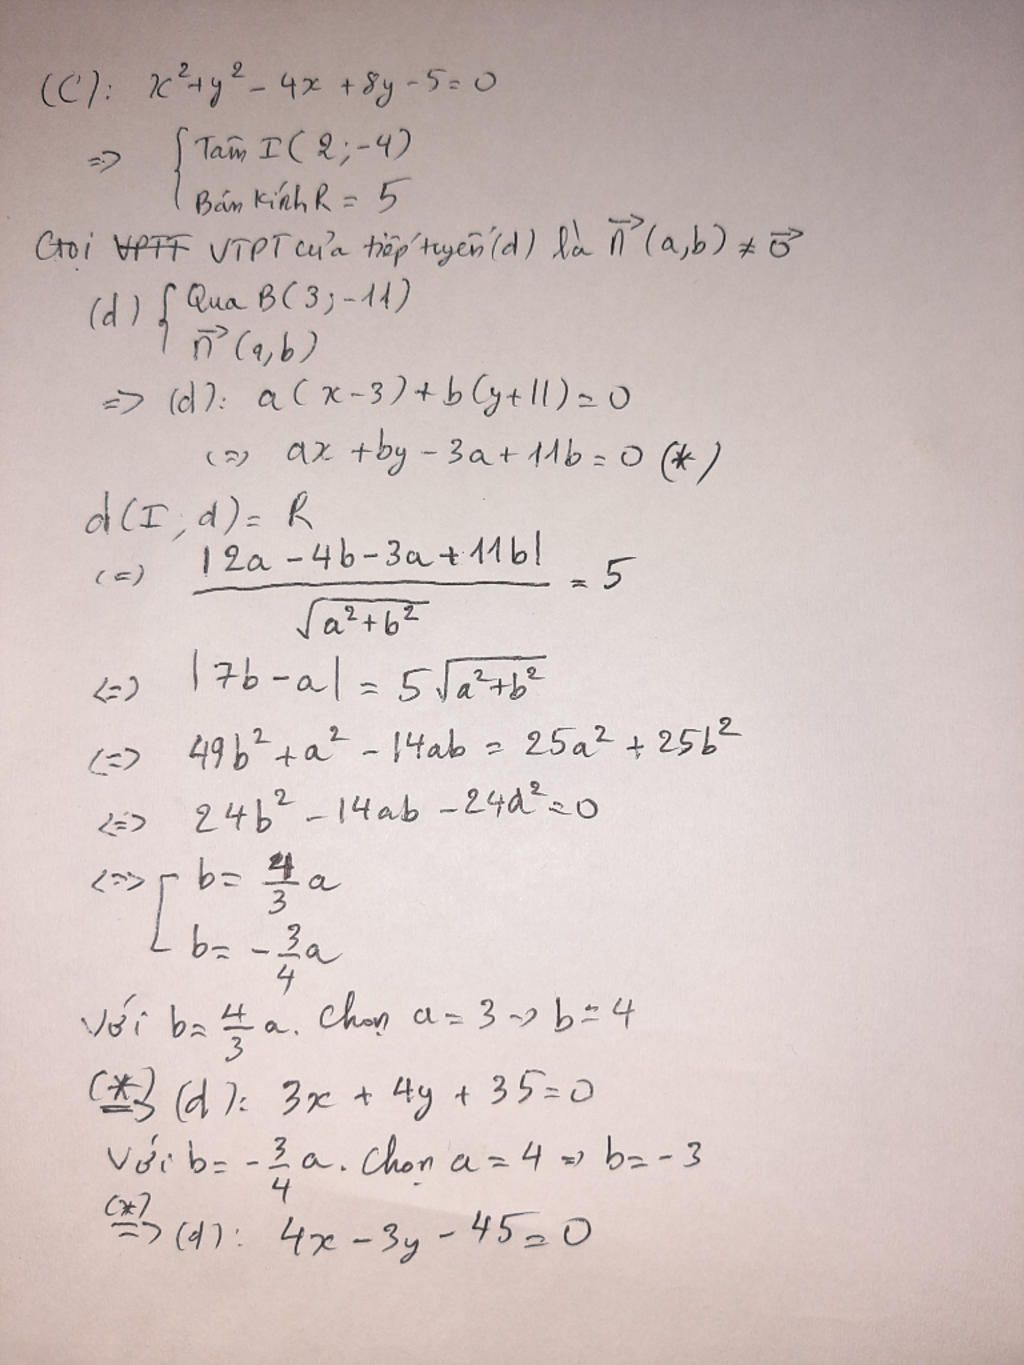 (C): x²+y² - 4x + 8y - 5 = 0
=> { Tâm I(2;-4)
Bán kính R = 5
Gọi VPTT VTPT của tiếp tuyến (d) là n⃗(a,b) ≠ 0⃗
(d) { Qua B(3;-11)
n⃗(a,b)
=> (d): a(x-3)+b(y+11)=0
<=> ax + by - 3a + 11b = 0 (*)
d(I,d) = R
<=> |2a - 4b - 3a + 11b| / √(a²+b²) = 5
<=> |7b - a| = 5√(a²+b²)
<=> 49b² + a² - 14ab = 25a² + 25b²
<=> 24b² - 14ab - 24a² = 0
<=> [ b = 4/3 a
b = -3/4 a
Với b = 4/3 a. Chọn a = 3 => b = 4
(*) => (d): 3x + 4y + 35 = 0
Với b = -3/4 a. Chọn a = 4 => b = -3
(*) => (d): 4x - 3y - 45 = 0